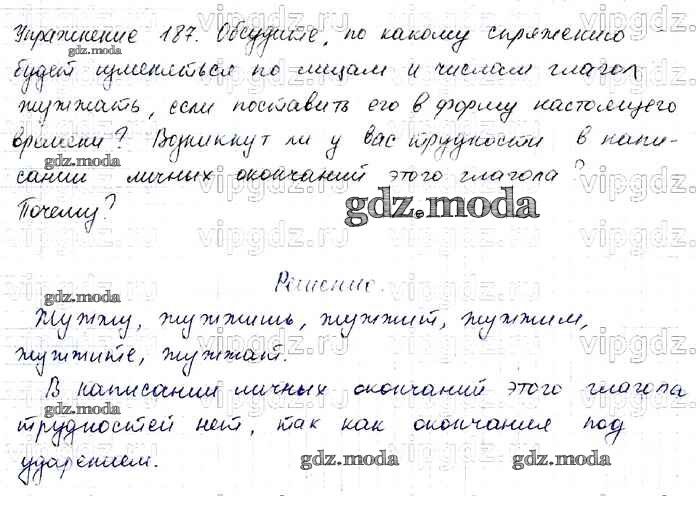 Упражнение 187. Обсудите, по какому спряжению
будет изменяться по лицам и числам глагол
жужжать, если поставить его в форму настоящего
времени? Возникнут ли у вас трудности в напи-
сании личных окончаний этого глагола?
Почему?
gdz.moda
Решение.
Жужжу, жужжишь, жужжит, жужжим,
жужжите, жужжат.
В написании личных окончаний этого глагола
трудностей нет, так как окончания под
ударением.
gdz.moda
gdz.moda